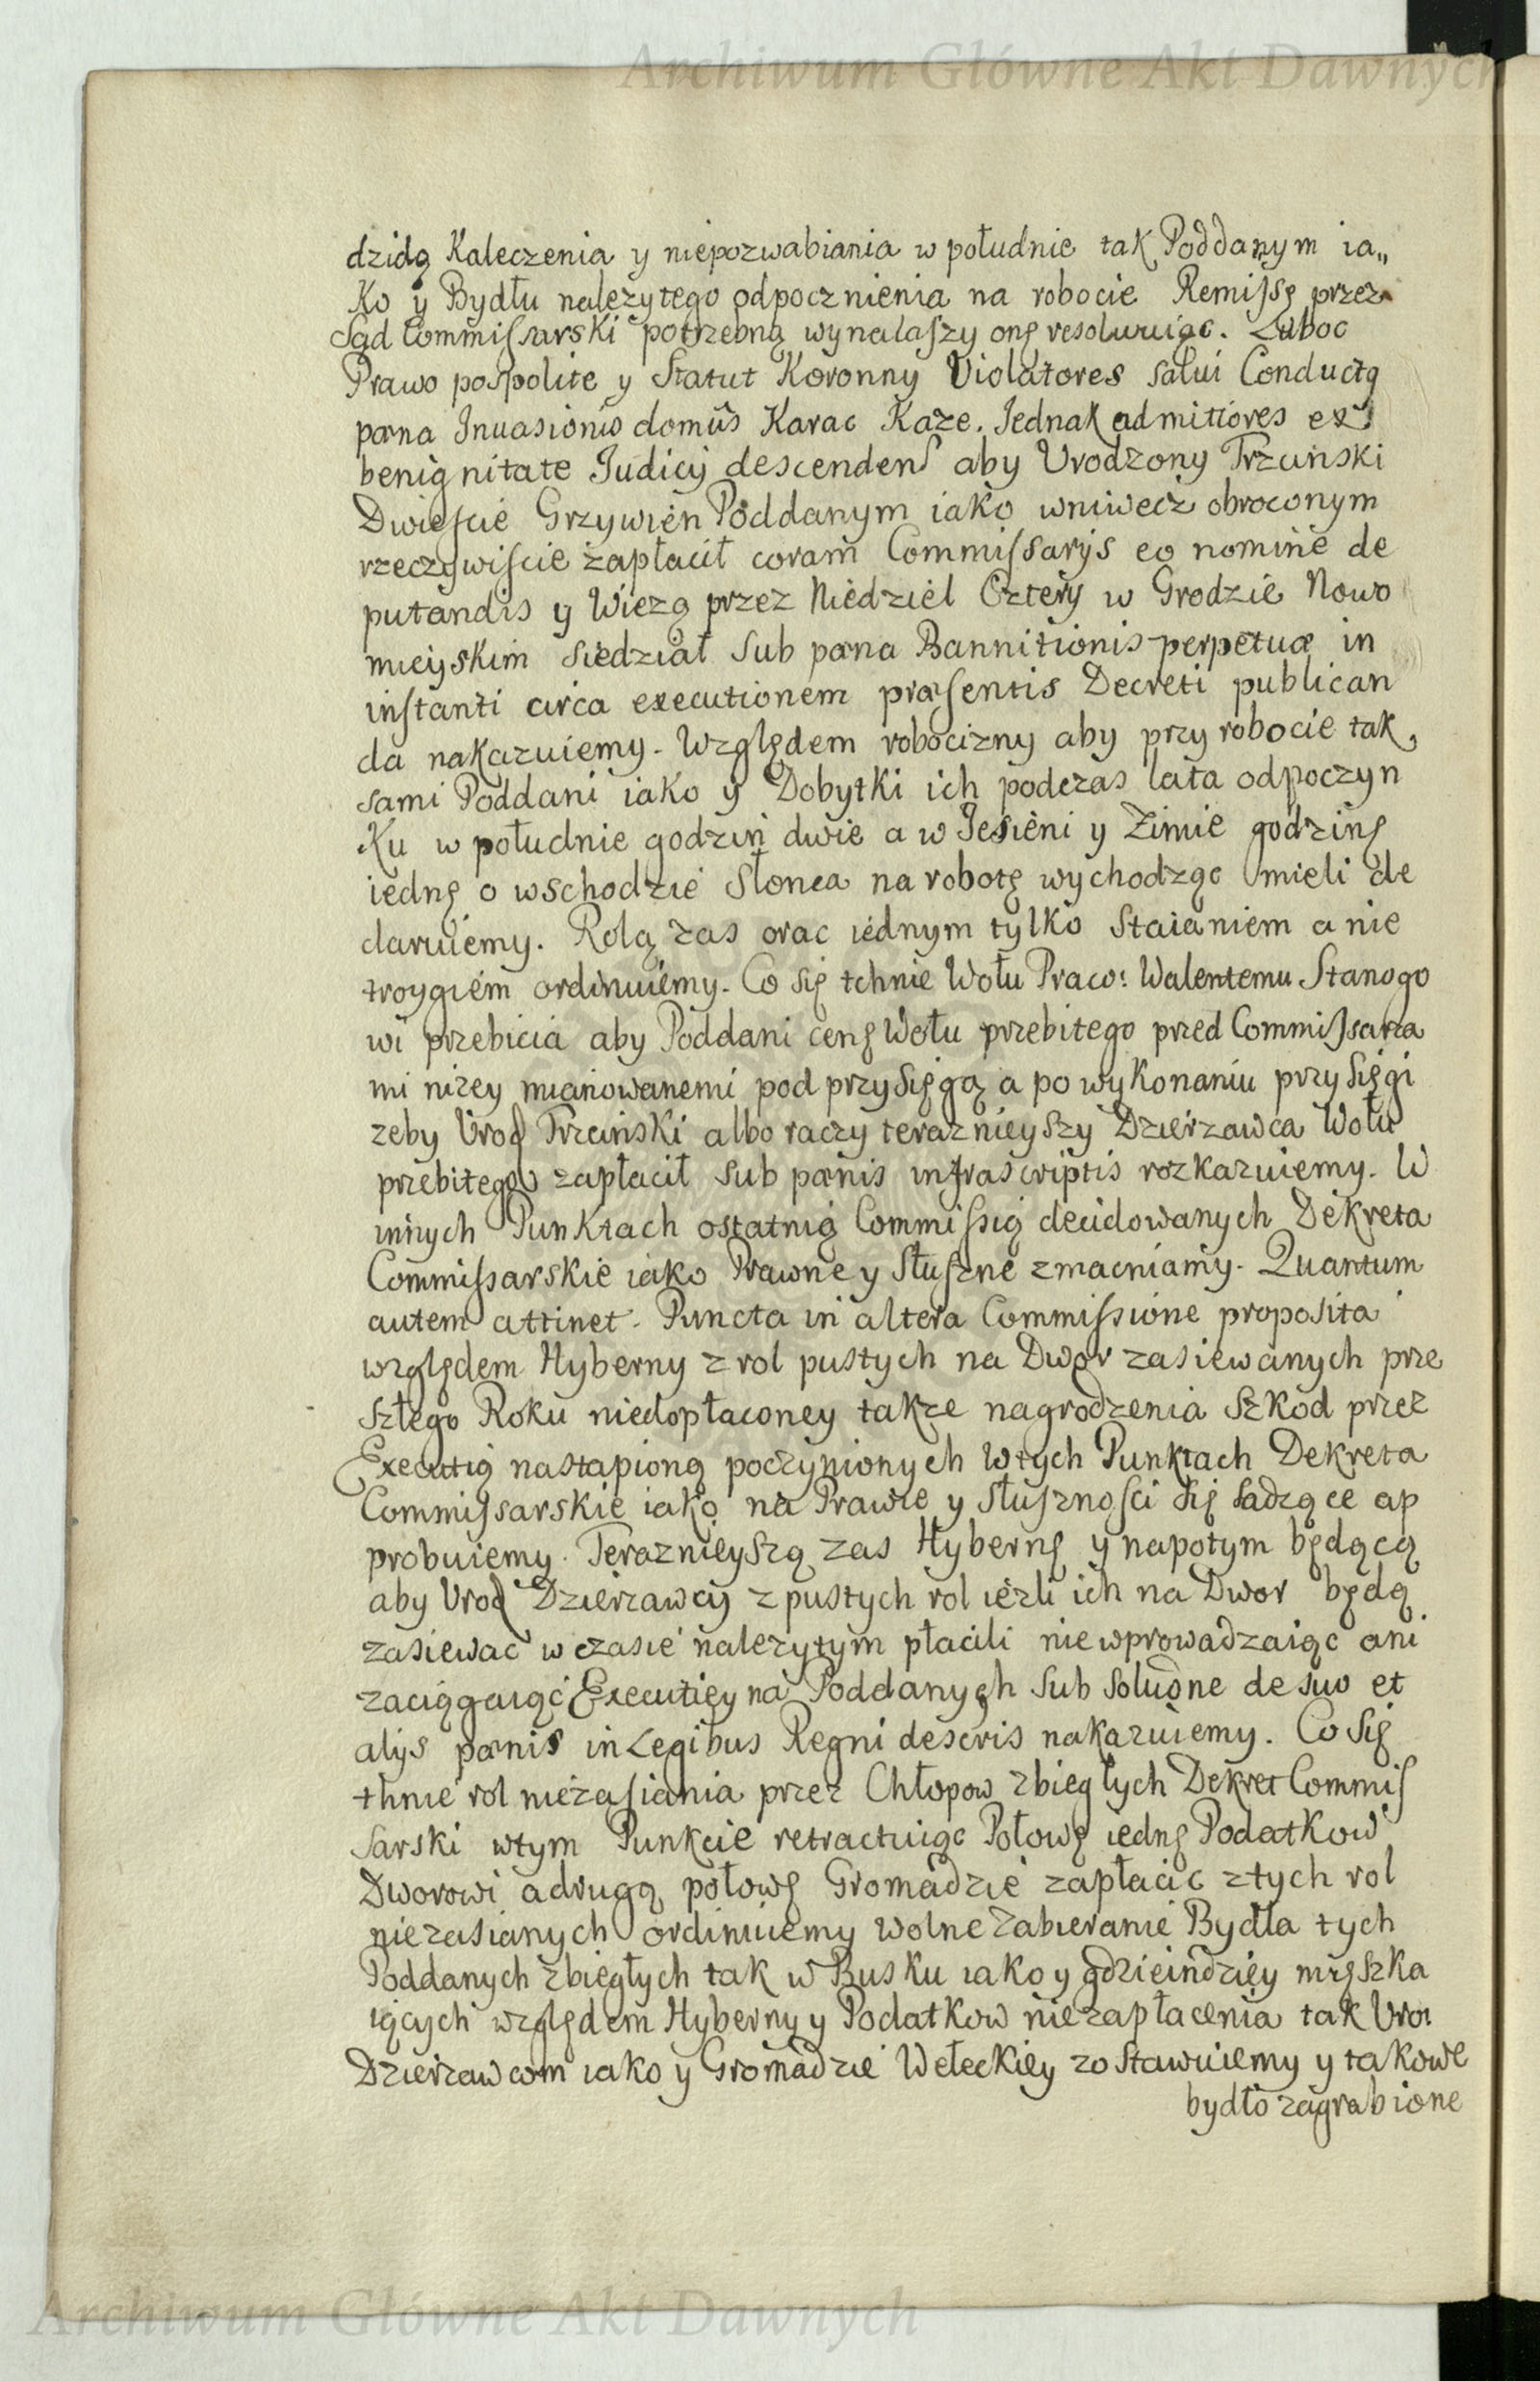 Archiwum Główne Akt Dawnych
dzidą Kaleczenia y niepozwabiania w południe tak Poddanym ia„
Ko y Bydłu nalezytego odpocznienia na robocie Remissę przez
Sąd Commissarski potrzebną wynalaszy onę resolwuiąc. Luboc
Prawo pospolite y Statut Koronny Violatores salui Conductꝯ
pæna Inuasionis domûs Karac Kaze. Jednak ad mitiores ex
benignitate Iudicij descendens aby Vrodzony Trzcinski
Dwiescie Grzywien Poddanym iako wniwecz obroconym
rzeczywiscie zapłacił coram Commissarijs eo nomine de
putandis y Wiezą przez Niedziel Cztery w Grodzie Nowo
mieyskim siedział sub pæna Bannitionis perpetuæ in
instanti circa executionem præsentis Decreti publican
da nakazuiemy. Względem robocizny aby przy robocie tak
sami Poddani iako y Dobytki ich podczas lata odpoczyn
Ku w południe godzin dwie a w Jesieni y Zimie godzinę
iednę o wschodzie Słonca na robotę wychodząc mieli de
claruiemy. Rolą zas orac iednym tylko Staianiem a nie
troygiem ordinuiemy. Co się tchnie Wołu Praco: Walentemu Stanogo
wi przebicia aby Poddani cenę Wołu przebitego przed Commissarza
mi nizey mianowanemi pod przysięgą a po wykonaniu przysięgi
zeby Urod Trzcinski albo raczy teraznieyszy Dzierzawca Wołu
przebitego zapłacił sub pænis infrascriptis rozkazuiemy. W
innych Punktach ostatnią Commissią decidowanych Dekreta
Commissarskie iako Prawne y Słuszne zmacniamy. Quantum
autem attinet. Puncta in altera Commissione proposita
względem Hyberny z rol pustych na Dwor zasiewanych prze
szłego Roku niedopłaconey takze nagrodzenia Szkod przez
Executią nastąpioną poczynionych w tych Punktach Dekreta
Commissarskie iako na Prawie y Słusznosci się sadzące ap
probuiemy. Teraznieyszą zas Hybernę y napotym będącą
aby Vrod Dzierzawcy z pustych rol iezli ich na Dwor będą
zasiewac w czasie nalezytym płacili nie wprowadzaiąc ani
zaciągaiąc Executiey na Poddanych sub solutione de suo et
alijs pænis in Legibus Regni descris nakazuiemy. Co się
thnie rol niezasiania przez Chłopow zbiegłych Dekret Commis
sarski w tym Punkcie retractuiąc Połowę iednę Podatkow
Dworowi a drugą połowę Gromadzie zapłacic z tych rol
niezasianych ordinuiemy Wolne Zabieranie Bydła tych
Poddanych zbiegłych tak w Busku iako y gdzieindziey mięszka
iących względem Hyberny y Podatkow niezapłacenia tak Uro:
Dzierzawcom iako y Gromadzie Wełeckiey zostawuiemy y takowe
bydło zagrabione
Archiwum Główne Akt Dawnych